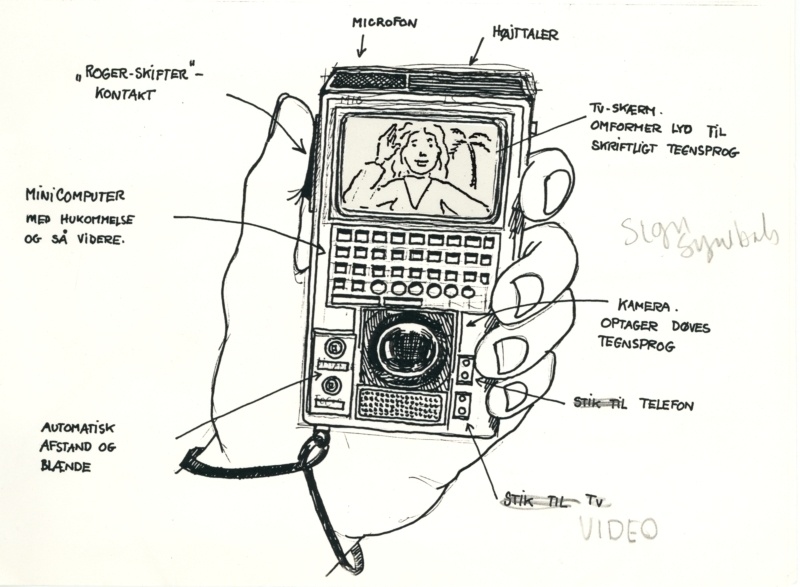 MICROFON
HØJTTALER
„ROGER-SKIFTER"-
KONTAKT
TV-SKÆRM.
OMFORMER LYD TIL
SKRIFTLIGT TEGNSPROG
MINICOMPUTER
MED HUKOMMELSE
OG SÅ VIDERE.
Sign
Symbols
KAMERA.
OPTAGER DØVES
TEGNSPROG
STIK TIL TELEFON
AUTOMATISK
AFSTAND OG
BLÆNDE
STIK TIL TV
VIDEO